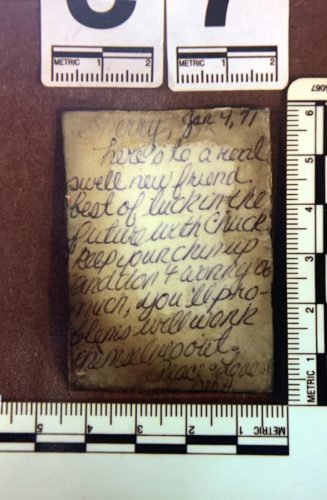 C 7
METRIC 1 2
METRIC 1 2
Sherry, Jan 4, 71
here's to a real
swell new friend.
best of luck in the
future with Chuck.
Keep your chin up
and don't worry so
much, you'll pro-
blems will work
themselves out.
Peace & Love
Deb H
6067
6
5
4
3
2
1
2
1
METRIC
5 4 3 2 1
2 1 METRIC